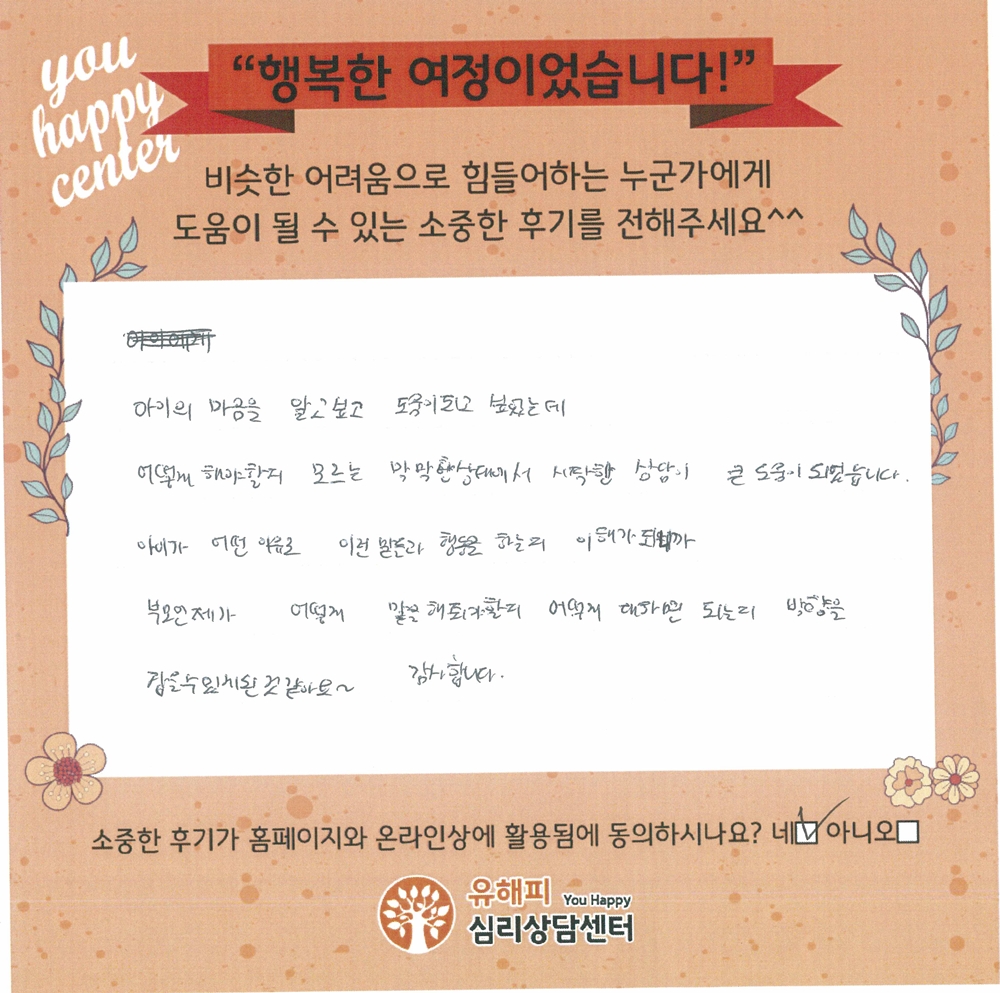 you
happy
center
“행복한 여정이었습니다!”
비슷한 어려움으로 힘들어하는 누군가에게
도움이 될 수 있는 소중한 후기를 전해주세요^^
아이의 마음을 알고싶고 도움이되고 싶었는데
어떻게 해야할지 모르는 막막한상태에서 시작한 상담이 큰 도움이 되었습니다.
아이가 어떤 이유로 이런 말들과 행동을 하는지 이해가 되니까
부모인 제가 어떻게 말을 해줘야할지 어떻게 대하면 되는지 방향을
잡을수있게된 것 같아요~ 감사합니다.
소중한 후기가 홈페이지와 온라인상에 활용됨에 동의하시나요? 네☑ 아니오☐
유해피 You Happy
심리상담센터